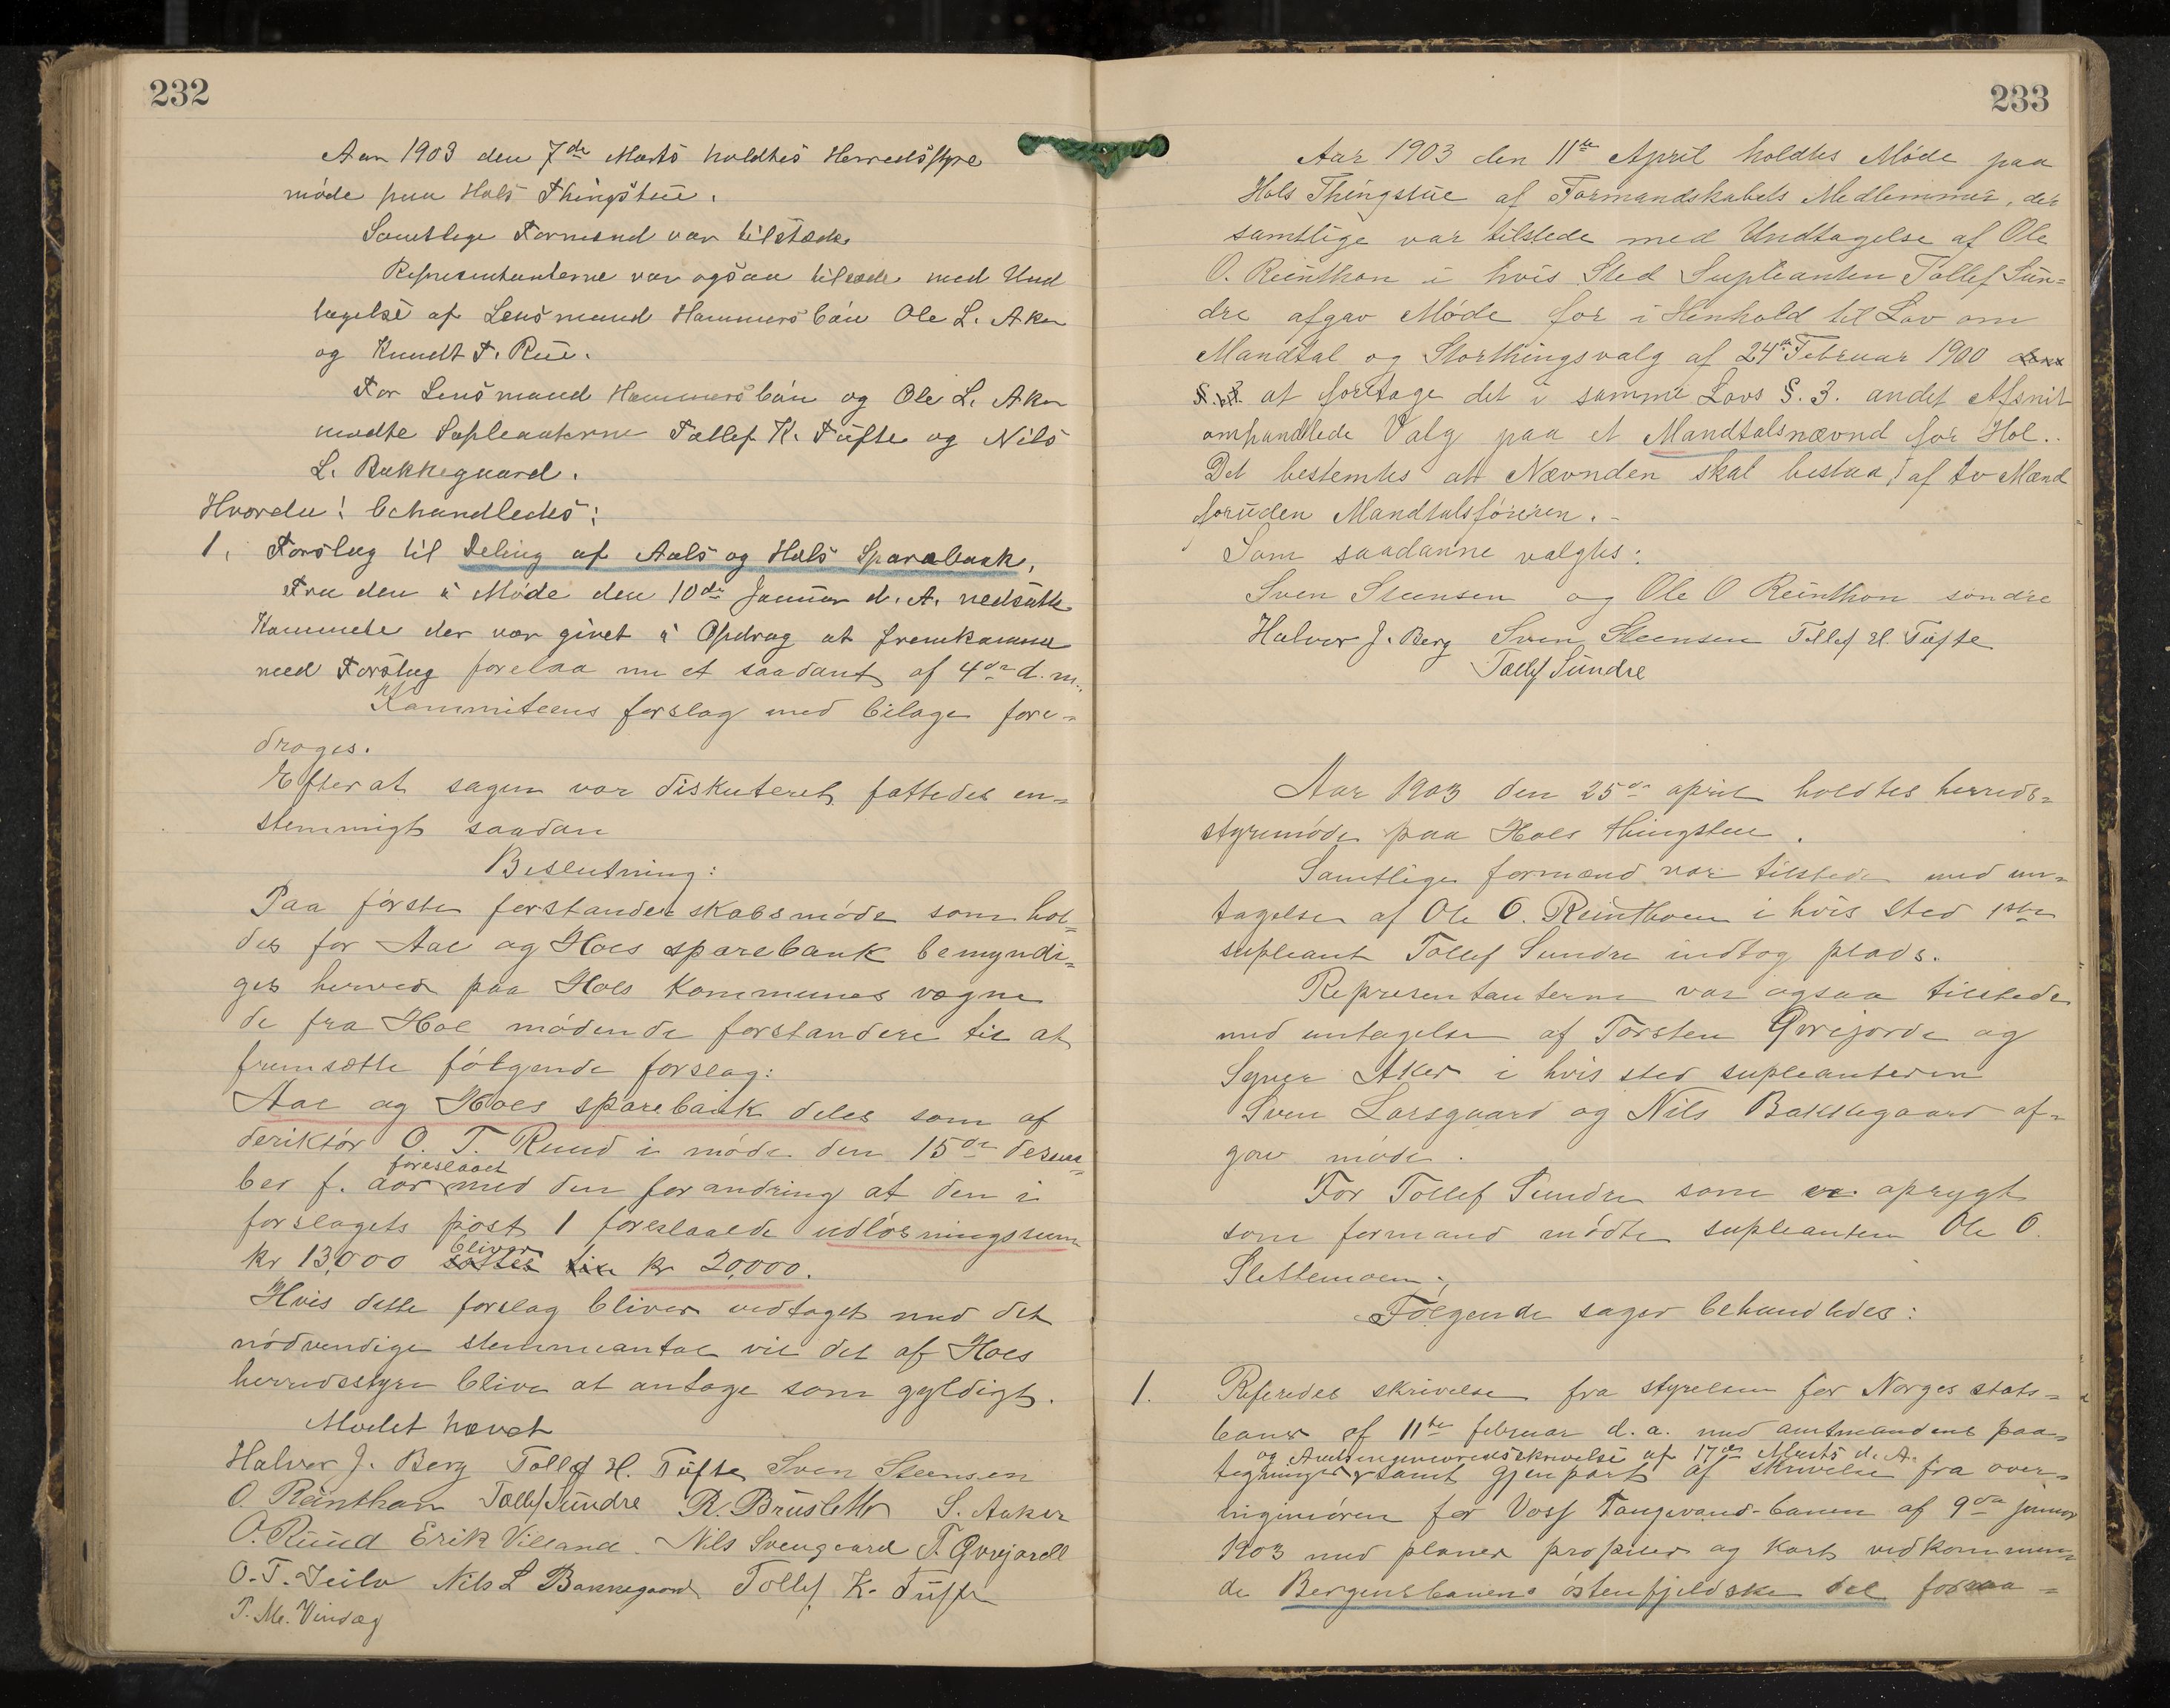 232
Aar 1903 den 7de Marts holdtes Herredsstyre
møde paa Hols Thingstue.
Samtlige Formænd var tilstæde
Representanterne var ogsaa tilstæde med Und
tagelse af Lensmand Hammersbøn Ole L. Aker
og Knudt T. Rue.
For Lensmand Hammersbøn og Ole L. Aker
mødte Supleanterne Tollef K. Tufte og Nils
L. Bakkegaard.
Hvorda! behandledes:
1. Forslag til Deling af Aals og Hols Sparebank,
Fra den i Møde den 10de Januar d. A. nedsatte
Kommite der var givet i Opdrag at fremkomme
med Forslag forelaa nu et saadant af 4de d. m.
Kommiteens forslag med bilage fore-
droges.
Efter at sagen var diskuteret fattedes en-
stemmigt saadan
Beslutning:
Paa første forstanderskabsmøde som hol-
des for Aal og Hols sparebank bemyndi-
ges herved paa Hols kommunes vegne
de fra Hol mødende forstandere til at
fremsætte følgende forslag:
Aal og Hols sparebank deles som af
deriktør O. T. Ruud i møde den 15de desem-
foreslaaet
ber f. aar med den forandring at den i
forslagets post 1 foreslaaede udløsningssum
bliver
kr 13,000 sættes til kr 20,000.
Hvis dette forslag bliver vedtaget med det
nødvendige stemmeantal vil det af Hols
herredsstyre blive at antage som gyldigt.
Mødet hævet
Halvor J. Berg Tollef H. Tufte Sven Steensen
O. Reinthon Tollef Sundre R. Brusletto S. Aaker
O. Ruud Erik Villand. Nils Svengaard T. Qvrejorde
O. T. Nils L Bakkegaard Tollef K. Tufte
T. M. Vindeg
233
Aar 1903 den 11te April holdtes Møde paa
Hols Thingstue af Formandskabets Medlemmer, der
samtlige var tilstede med Undtagelse af Ole
O. Reinthon i hvis Sted Supleanten Tollef Sun-
dre afgav Møde for i Henhold til Lov om
Mandtal og Storthingsvalg af 24de Februar 1900
at foretage det i samme Lovs §. 3. andet Afsnit
omhandlede Valg paa et Mandtalsnævnd for Hol.
Det bestemtes at Nævnden skal bestaa af to Mænd
foruden Mandtalsføreren.-
Som saadanne valgtes:
Sven Steensen og Ole O Reinthon søndre
Halvor J. Berg Sven Steensen Tollef H. Tufte
Tollef Sundre
Aar 1903 den 25de april holdtes herreds-
styremøde paa Hols thingstue.
Samtlige formænd var tilstede med un-
tagelse af Ole O. Reinthon i hvis sted 1ste
supleant Tollef Sundre indtog plads.
Representanterne var ogsaa tilstede
med untagelse af Torsten Qvrejorde og
Syver Aker i hvis sted supleanterne
Sven Larsgaard og Nils Bakkegaard af-
gav møde.
For Tollef Sundre som er oprygt
som formand mødte supleanten Ole O.
Slettemoen.
Følgende sager behandledes:
1. Referedes skrivelse fra styrelsen for Norges stats-
baner af 11te februar d. a. med amtmandens paa-
og Avdelingeniørens skrivelse af 17de Marts d. A.
tegninger samt gjenpart af skrivelse fra over-
ingeniøren for Voss Taugevand-banen af 9de januar
1903 med planer profiler og kart vedkommen-
de Bergensbanens østenfjeldske del forsaa-